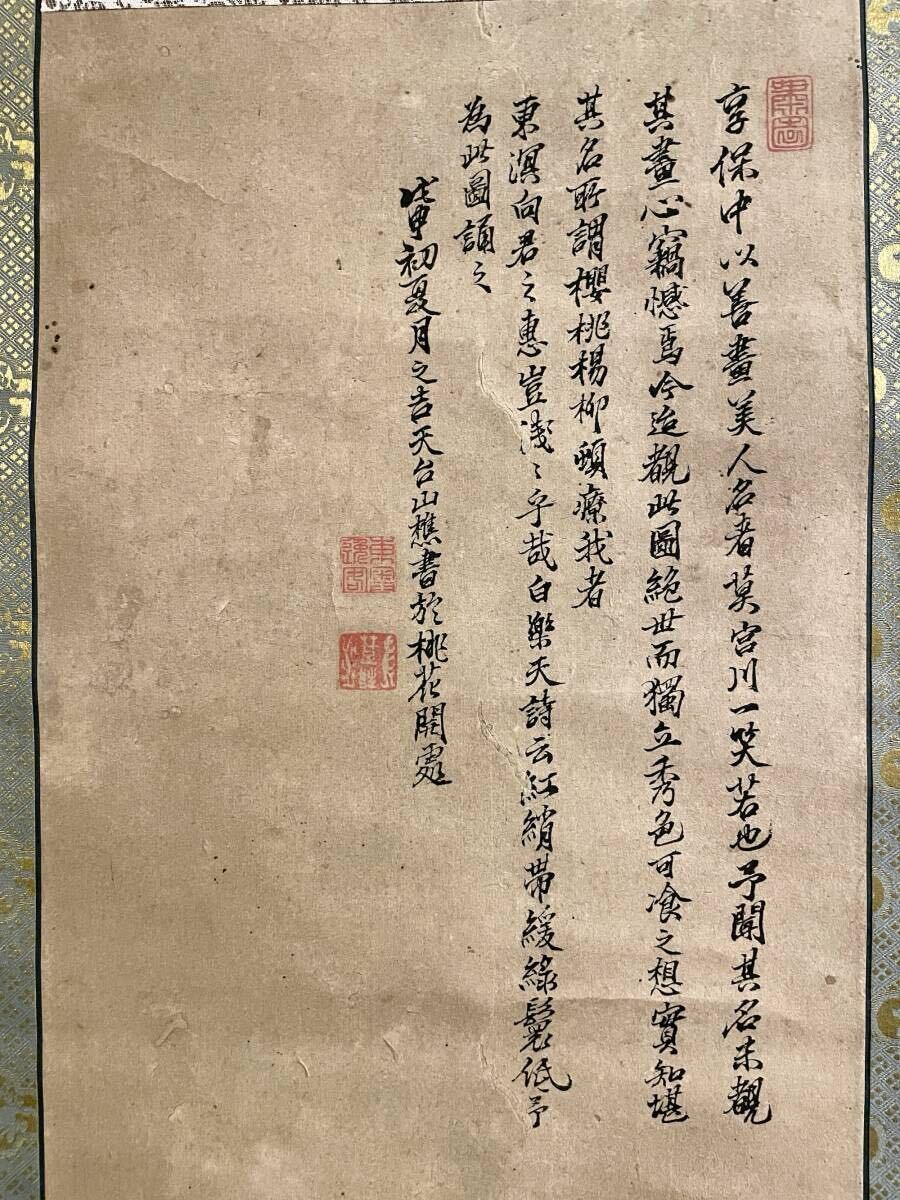 享保中以善畫美人名者莫宮川一笑若也予聞其名未觀
其畫心竊憾焉今迨觀此圖絶世而獨立秀色可飡之想實知堪
其名所謂櫻桃楊柳頓療我者
東溟向君之惠豈淺〻乎哉白樂天詩云紅綃帶緩綠鬟低予
為此圖誦之
戊申初夏月之吉天台山樵書於桃花開處